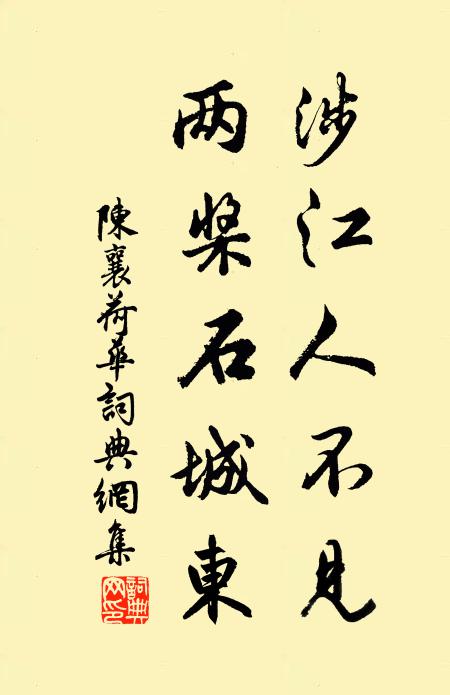 涉江人不見
两槳石城東
陳襄荷華詞典網集
詞典网印